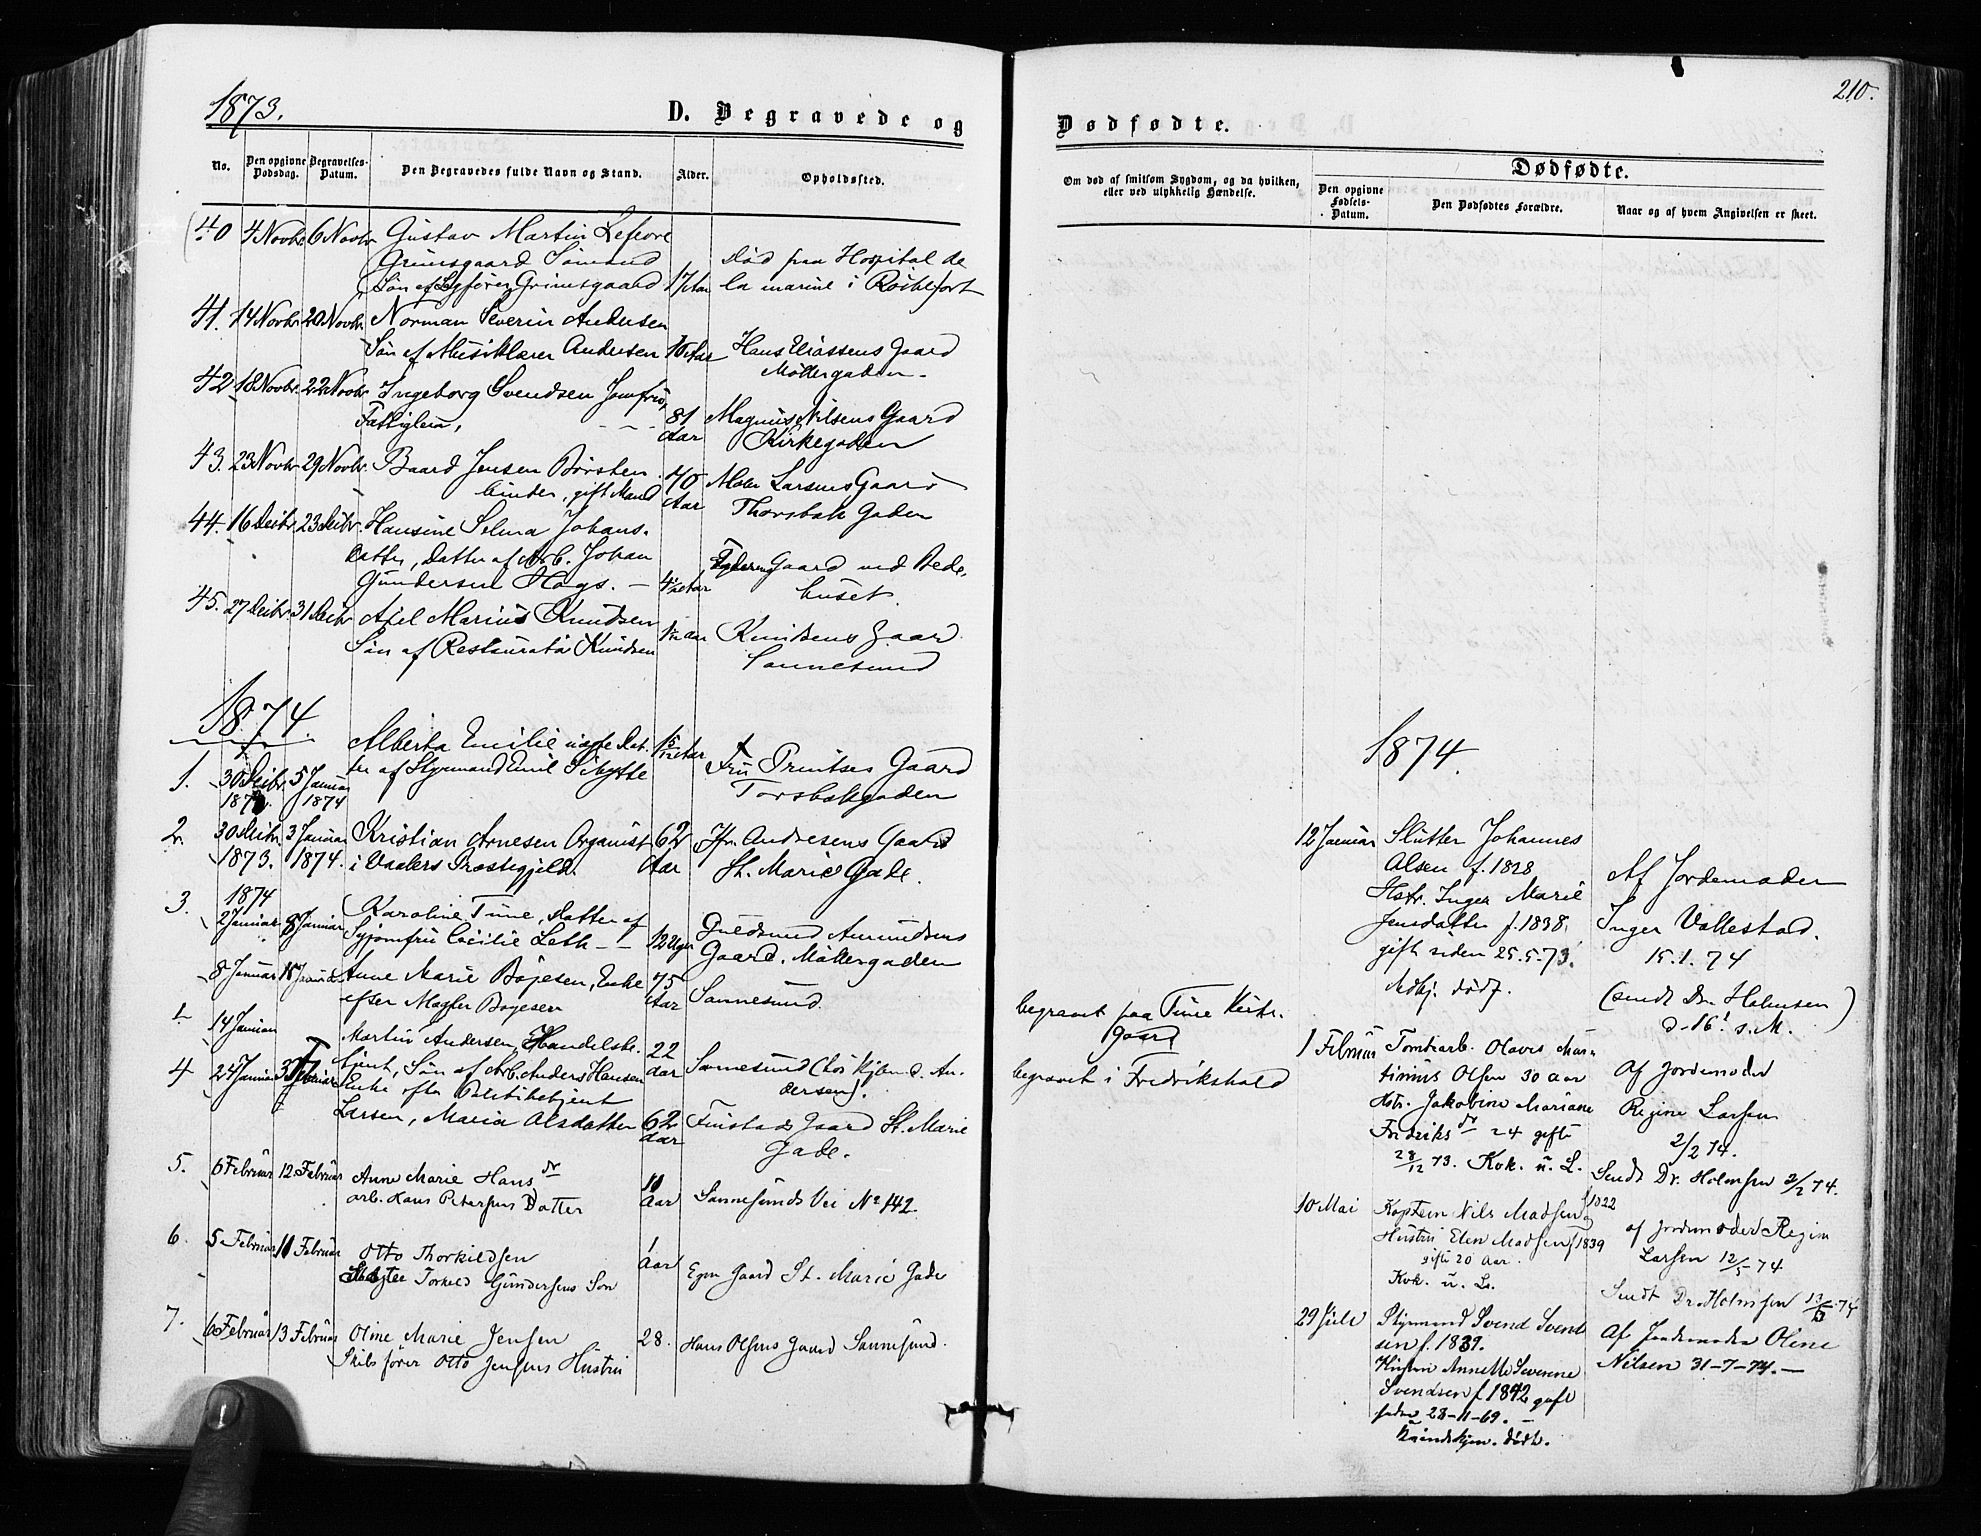 1873.
D. Begravede og
No.
Den opgivne Dødsdag.
Begravelses-Datum.
Den Begravedes fulde Navn og Stand.
Alder.
Opholdssted.
40 4 Novbr 6 Novbr Gustav Martin
Grimsgaard Sømand død paa Hospital de
Søn af Grimsgaard 17 Aar la marine i Rochefort
41. 14 Novbr. 20 Novbr. Norman Severin Andersen
Søn af Musiklærer Andersen Aar Hans gaard
Møllergaden.
42 18 Novbr. 22 Novbr Ingeborg Svendsen Jomfru,
Fattiglem, 81 Aar Magnus Nilsens Gaard
Kirkegaden
43. 23 Novbr 29 Novbr. Baard Jensen Børsten
binder, gift Mand 70 Aar Larsens Gaard
Thorsbæk Gaden
44. 16 Decbr 23 Decbr. Hansine Selma Johans-
datter, Datter af Arb. Johan
Gundersen 4 Aar Gaard ved Bede-
huset.
45. 27 Decbr 31 Decbr Axel Marius Knudsen
Søn af Restauratør Knudsen Aar Knudsens Gaard
Sannesund
1874.
1. 30 Decbr 1873. 5 Januar 1874 Alberta Emilie uægte Dat-
ter af Styrmand Emil Aar Fru Printses Gaard
Torsbækgaden
2. 30 Decbr 1873. 3 Januar 1874. Kristian Arnesen Organist
i Vaalers Præstegjeld. 62 Aar Andresens Gaard
St. Marie Gade.
3. 1874 2 Januar 8 Januar Karoline Tune, Datter af
Syjomfru Cecilie Leth 12 Uger Gudmund Amundsens
Gaard. Møllergaden
8 Januar Januar Anne Marie Bøjesen, Enke
efter Bøjesen 75 Aar Sannesund.
14 Januar Martin Andersen, Handelsbe-
tjent, Søn af Arb. Anders Hansen 22 Aar Sannesund (hos Kjøbm. O. An-
dersen).
4 24 Januar 3 Februar Enke efter Politibetjent
Larsen, Maria Olsdatter 62 Aar Finstads Gaard St. Marie
Gade.
5. 6 Februar 12 Februar Anne Marie Hans dr
arb. Hans Petersens Datter Aar Sannesunds Vei No 142.
6. 5 Februar 11 Februar Otto Thorkildsen
Torkild Gundersens Søn 1 Aar Egen Gaard St. Marie Gade
7. 6 Februar 13 Februar Oline Marie Jensen
Skibsfører Otto Jensens Hustru 28. Hans Olsens Gaard Sannesund.
210.
Dødfødte.
Om død af smitsom Sygdom, og da hvilken, eller ved ulykkelig Hændelse.
Dødfødte.
Den opgivne Fødsels-Datum.
Den Dødfødtes Forældre.
Naar og af hvem Angivelsen er skeet.
1874.
12 Januar Slutter Johannes
Olsen f. 1828
Hstr. Inger Marie
Jensdatter f. 1838,
gift siden 25.5.73.
dødf.
Af Jordemoder
Inger Vallestad.
15.1.74
(sendt Dr. Holmsen
d. 16! s.M.)
begravet paa Tune Kirke-
gaard
begravet i Fredrikshald
1 Februar Tomtearb. Olavis Mar-
tinius Olsen 30 Aar
Hstr. Jakobine Mariane
Fredriks dr 24 gifte
28/12 73. Kvk. u. L.
Af Jordemoder
Regine Larsen
2/2 74.
Sendt Dr. Holmsen 3/2 74.
10 Mai Kaptein Nils Madsen f 1822
Hustru Elen Madsen f 1839
gifte 20 Aar.
Kvk. u. L.
af Jordemoder Regin
Larsen 12/5-74
Sendt Dr. Holmsen 13/5 74
29 Juli Styrmand Svend Svend
sen f. 1839.
Hustru Annette Severine
Svendsen f 1842 gift
siden 28-11-69. —
Kvindekjøn. dødf.
Af Jordemoder Oline
Nilsen 31-7-74. —